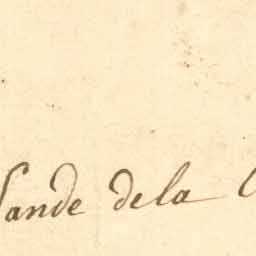 lande dela